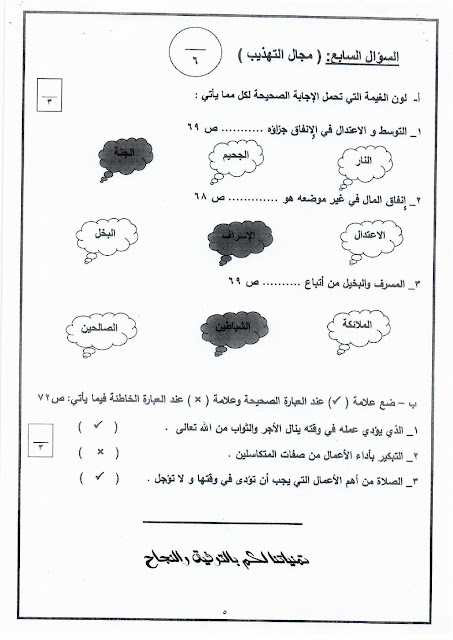 السؤال السابع: ( مجال التهذيب )
٦
أ- لون الغيمة التي تحمل الإجابة الصحيحة لكل مما يأتي :
٣
١_ التوسط و الاعتدال في الإنفاق جزاؤه ........... ص ٦٩
النار الجحيم الجنة
٢_ إنفاق المال في غير موضعه هو ............. ص ٦٨
الاعتدال الإسراف البخل
٣_ المسرف والبخيل من أتباع .......... ص ٦٩
الملائكة الشياطين الصالحين
ب – ضع علامة ( ✓ ) عند العبارة الصحيحة وعلامة ( × ) عند العبارة الخاطئة فيما يأتي: ص ٧٢
١_ الذي يؤدي عمله في وقته ينال الأجر والثواب من الله تعالى . ( ✓ )
٣
٢_ التبكير بأداء الأعمال من صفات المتكاسلين . ( × )
٣_ الصلاة من أهم الأعمال التي يجب أن تؤدى في وقتها و لا تؤجل . ( ✓ )
تمنياتنا لكم بالتوفيق والنجاح
٥